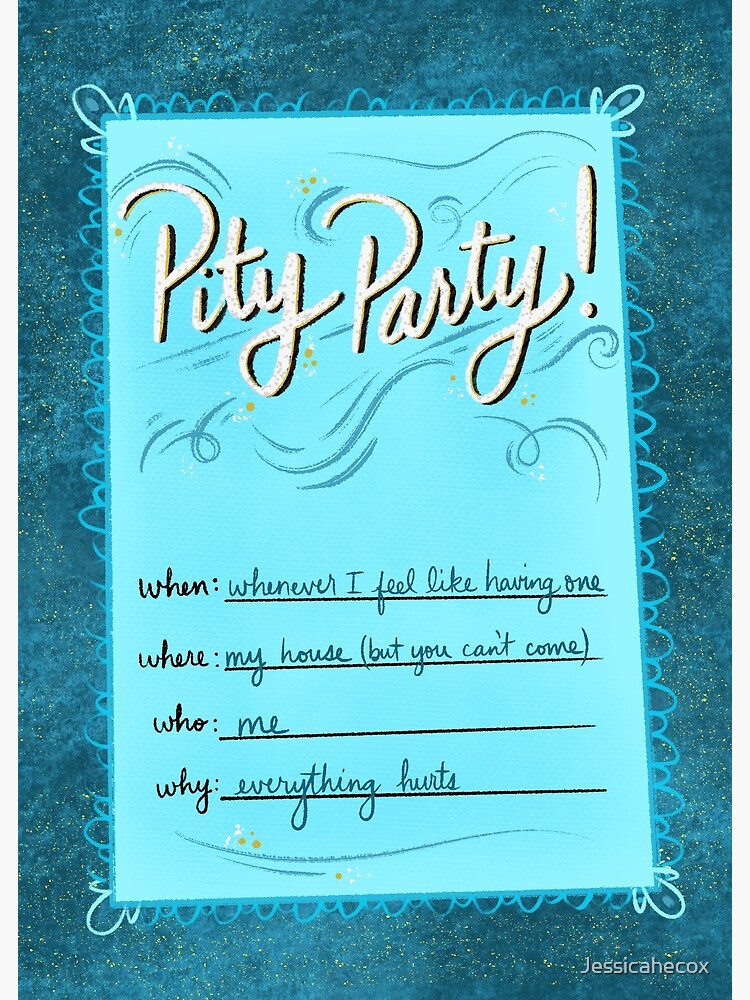 Pity Party!
when: whenever I feel like having one
where: my house (but you can't come)
who: me
why: everything hurts
Jessicahecox